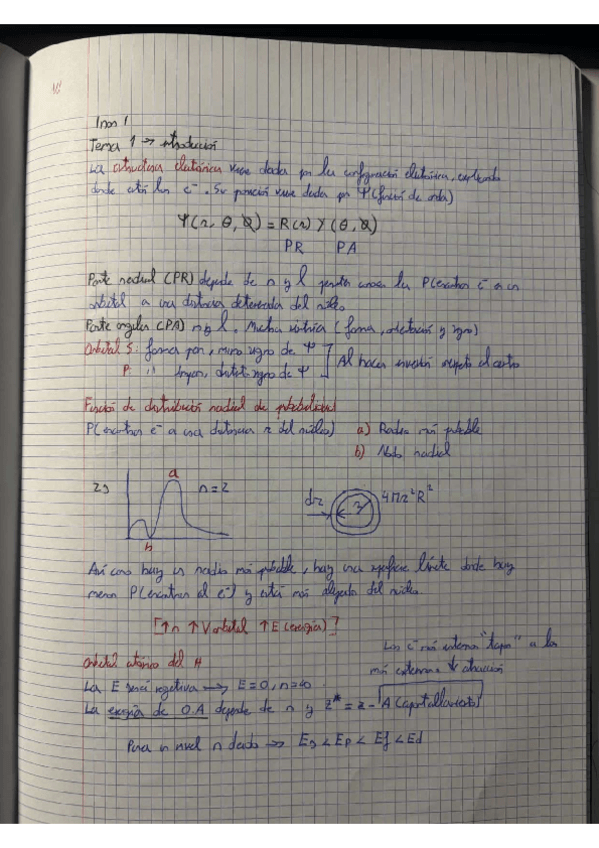 Inor 1
Tema 1 → introducción
La estructura electrónica viene dada por la configuración electrónica, explicando
donde están los e⁻. Su posición viene dada por Ψ (función de onda)
Ψ(r, θ, φ) = R(r) Y(θ, φ)
PR PA
Parte radial (PR) depende de n y l permite conocer la P(encontrar e⁻ a un
orbital a una distancia determinada del núcleo
Parte angular (PA) m y l. Mucha (forma, orientación y signo)
Orbital S: forma par, mismo signo de Ψ
P: " impar, distinto signo de Ψ
Al hacer inversión respecto al centro
Función de distribución radial de probabilidad
P(encontrar e⁻ a una distancia r del núcleo)
a) Radio más probable
b) Nodo radial
2s
a
n=2
b
dr
r
4πr²R²
Así como hay un radio más probable, hay una superficie límite donde hay
menos P(encontrar al e⁻) y está más alejada del núcleo.
[↑n ↑V orbital ↑E (energía)]
Orbital atómico del H
Los e⁻ más internos "tapan" a los
más externos ↓ atracción
La E será negativa → E=0, n=∞
La energía de O.A depende de n y z* = z - A (apantallamiento)
Para un nivel n dado → Es < Ep < Ef < Ed